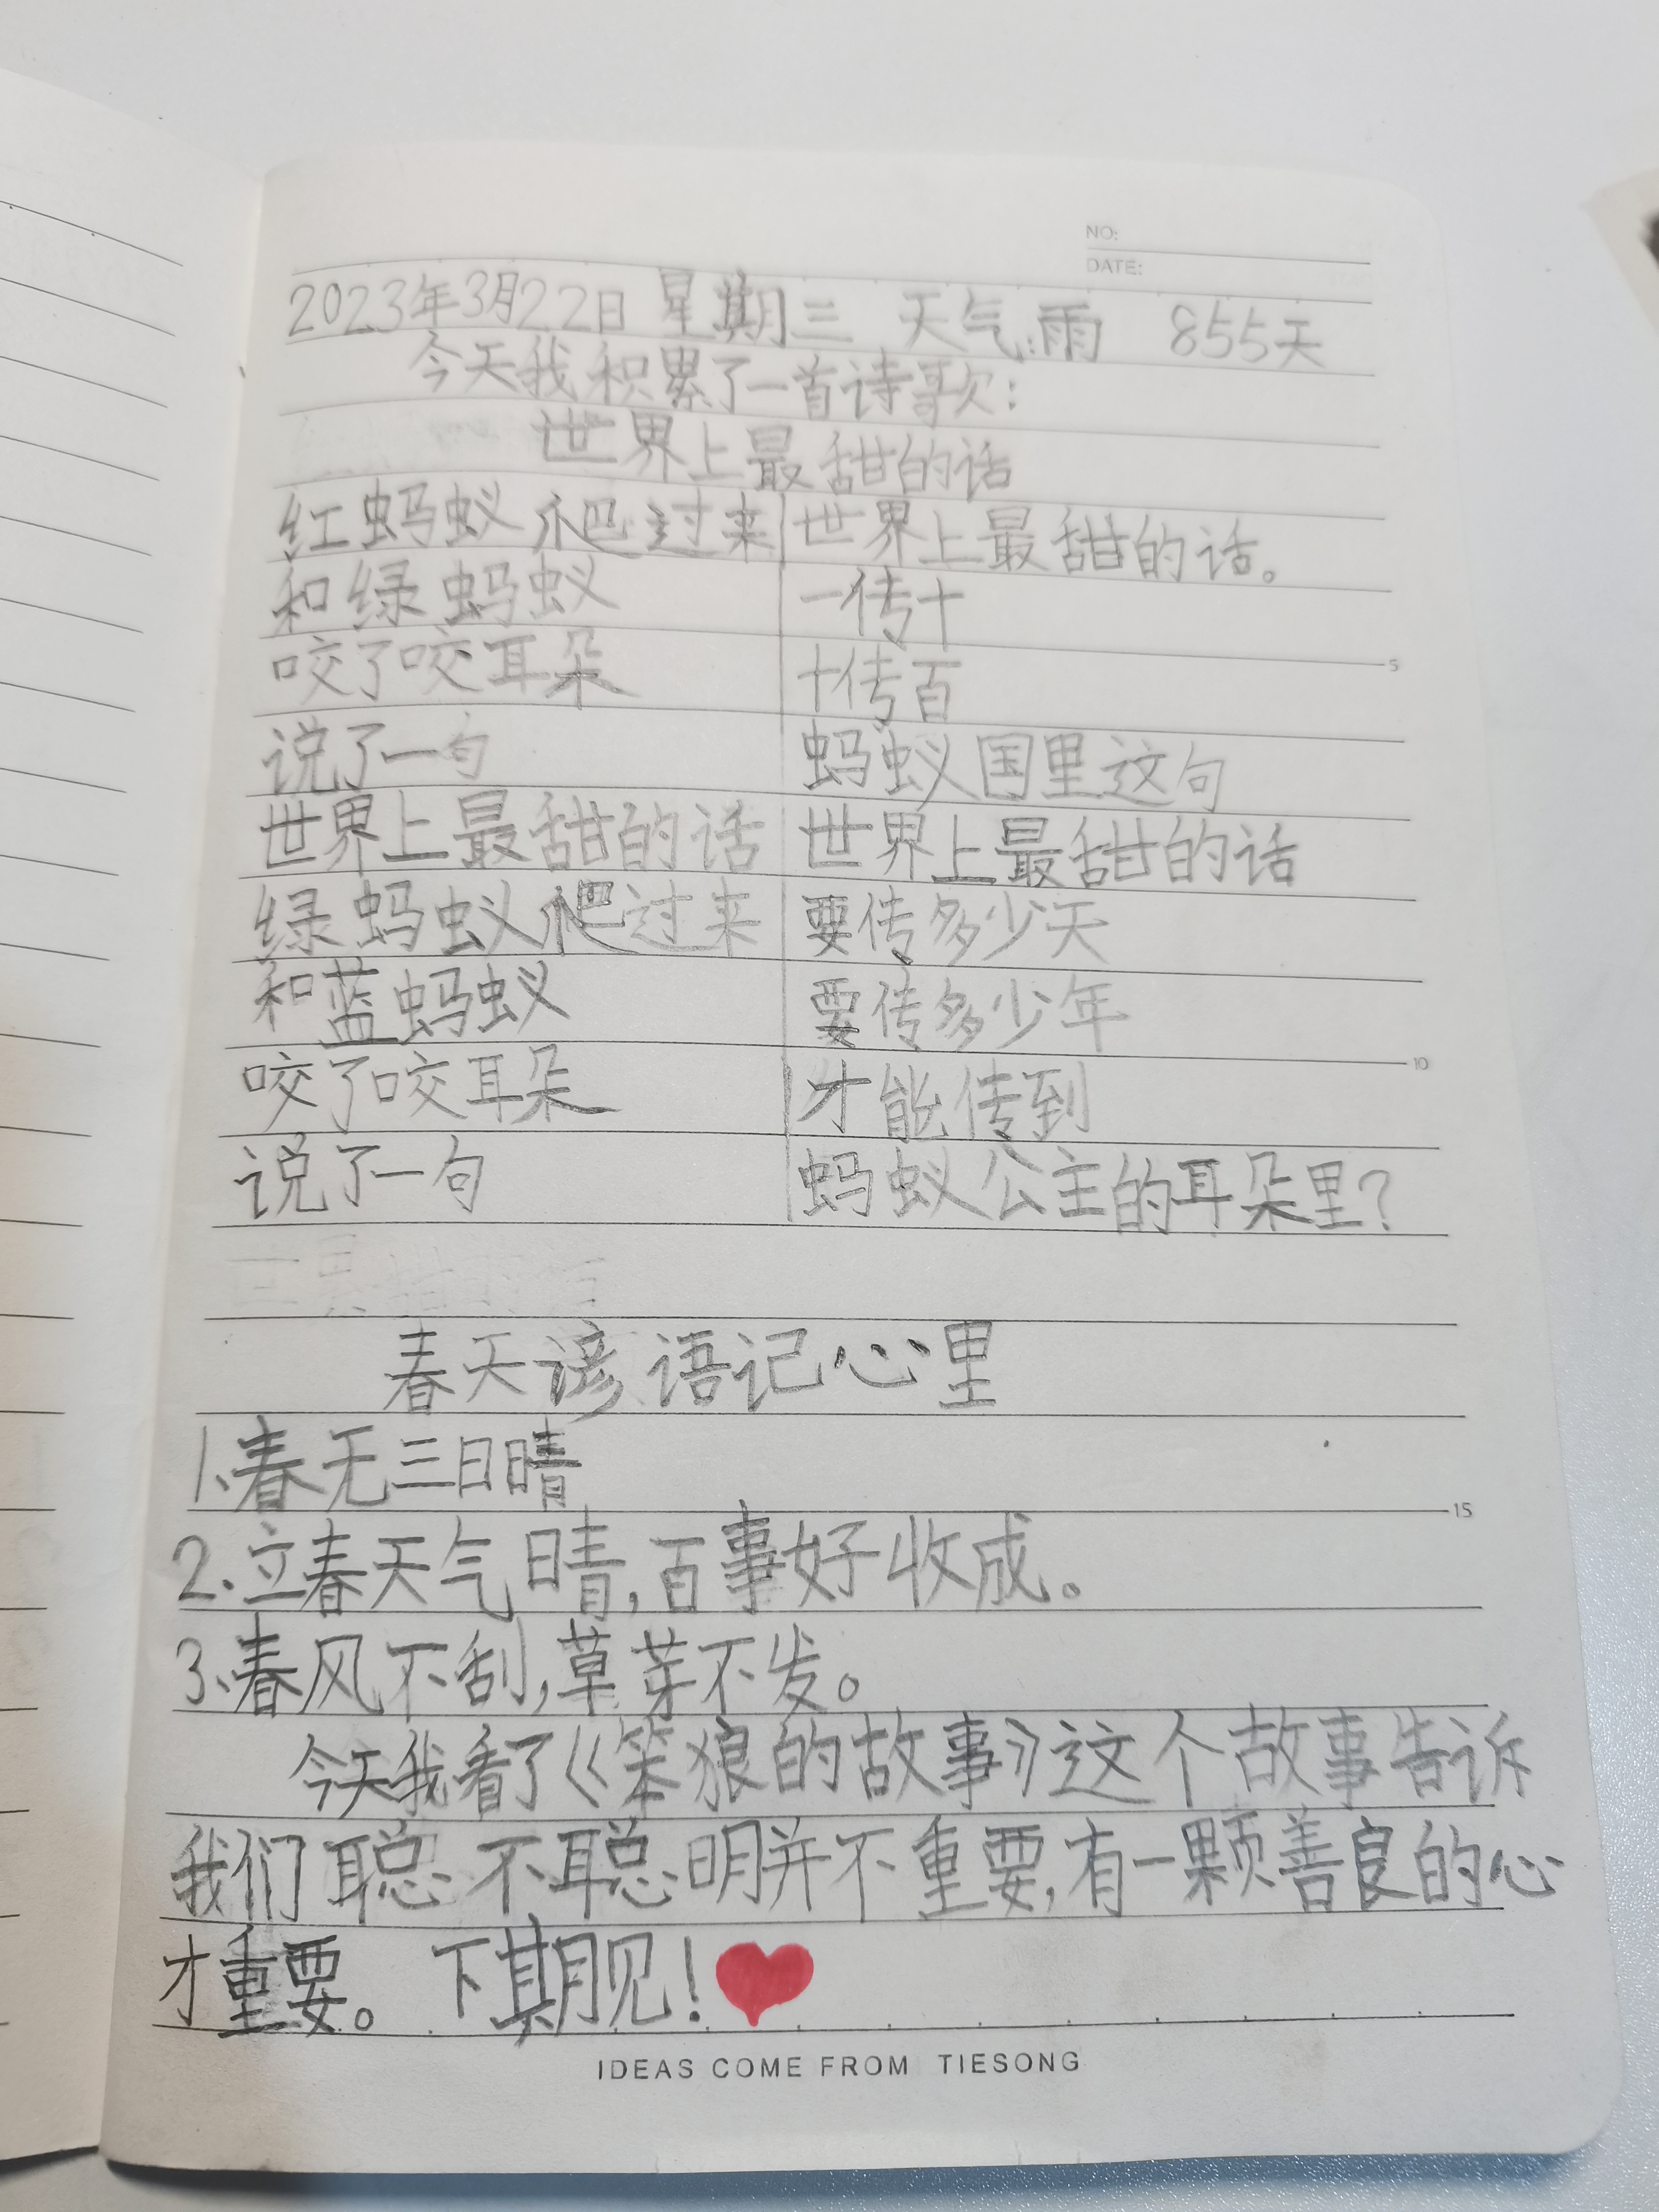 NO:
DATE:
2023年3月22日 星期三 天气:雨 855天
今天我积累了一首诗歌:
世界上最甜的话
红蚂蚁爬过来
和绿蚂蚁
咬了咬耳朵
说了一句
世界上最甜的话
绿蚂蚁爬过来
和蓝蚂蚁
咬了咬耳朵
说了一句
世界上最甜的话。
一传十
十传百
蚂蚁国里这句
世界上最甜的话
要传多少天
要传多少年
才能传到
蚂蚁公主的耳朵里?
5
10
春天谚语记心里
1、春无三日晴
15
2.立春天气晴,百事好收成。
3、春风不刮,草芽不发。
今天我看了《笨狼的故事》这个故事告诉
我们聪不聪明并不重要,有一颗善良的心
才重要。 下期见!
IDEAS COME FROM TIESONG